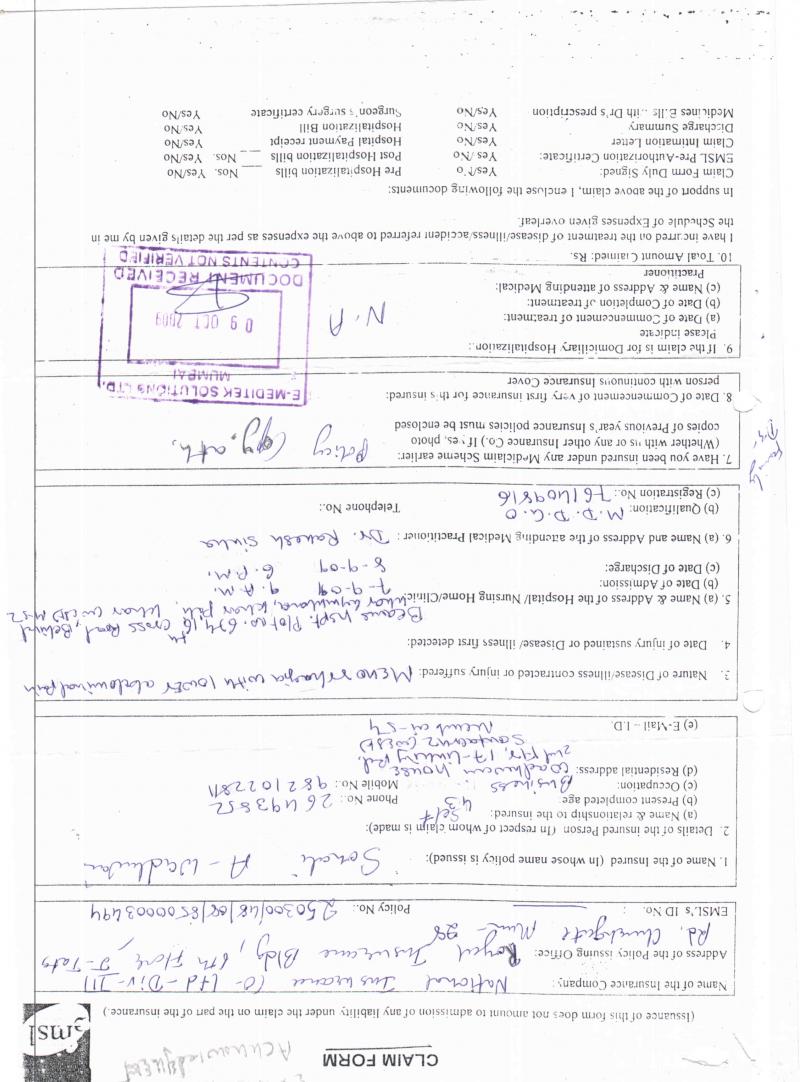 Acknowledgement
CLAIM FORM
emsl
(Issuance of this form does not amount to admission of any liability under the claim on the part of the insurance.)
Name of the Insurance Company: National Insurance Co-Ltd-Div-III
Address of the Policy issuing Office: Royal Insurance Bldg, 6th Flore, J-Tata
Rd. Churchgate Mum-20
EMSL's ID No. : Policy No.: 250300/48/08/8500003494
1. Name of the Insured (In whose name policy is issued): Sonali A-Wadhwa
2. Details of the insured Person (In respect of whom claim is made):
(a) Name & relationship to the insured: Self
(b) Present completed age: 43 Phone No.: 26493852
(c) Occupation: Business Mobile No.: 9821022811
(d) Residential address: Wadhwan house
2nd Flr, 17-Linking Rd.
Santacruz (West)
Mumbai-54
(e) E-Mail – I.D.
3. Nature of Disease/Illness contracted or injury suffered: Menorrhagia with lower abdominal pain
4. Date of injury sustained or Disease/ illness first detected:
Beams Hspt. Plot no. 674, 16th cross Road, Behind
5. (a) Name & Address of the Hospital/ Nursing Home/Clinic: Khar Gymkhana, Khar Pali, Khar (West) M-52
(b) Date of Admission: 7-9-09 9. A.M.
(c) Date of Discharge: 8-9-09 6. P.M.
6. (a) Name and Address of the attending Medical Practitioner : Dr. Rakesh Sinha
(b) Qualification: M.D.D.G.O Telephone No.:
(c) Registration No.: 761409816
7. Have you been insured under any Mediclaim Scheme earlier:
(Whether with us or any other Insurance Co.) If yes, photo
copies of Previous year's Insurance policies must be enclosed
Policy Copy. ath.
8. Date of Commencement of very first insurance for this insured:
person with continuous Insurance Cover
E-MEDITEK SOLUTIONS LTD.
MUMBAI
09 OCT 2009
DOCUMENT RECEIVED
CONTENTS NOT VERIFIED
9. If the claim is for Domiciliary Hospitalization:
Please indicate
(a) Date of Commencement of treatment:
(b) Date of Completion of treatment:
(c) Name & Address of attending Medical:
Practitioner
N.A
10. Total Amount Claimed: Rs.
I have incurred on the treatment of disease/illness/accident referred to above the expenses as per the details given by me in
the Schedule of Expenses given overleaf.
In support of the above claim, I enclose the following documents:
Claim Form Duly Signed: Yes/No Pre Hospitalization bills __ Nos. Yes/No
EMSL Pre-Authorization Certificate: Yes/No Post Hospitalization bills __ Nos. Yes/No
Claim Intimation Letter Yes/No Hospital Payment receipt Yes/No
Discharge Summary Yes/No Hospitalization Bill Yes/No
Medicines Bills with Dr's prescription Yes/No Surgeon's surgery certificate Yes/No